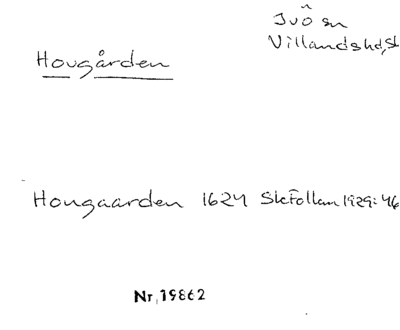 Ivö sn
Villandshd, Sk
Hovgården
Hougaarden 1624 SkFollam 1929:46
Nr. 19862